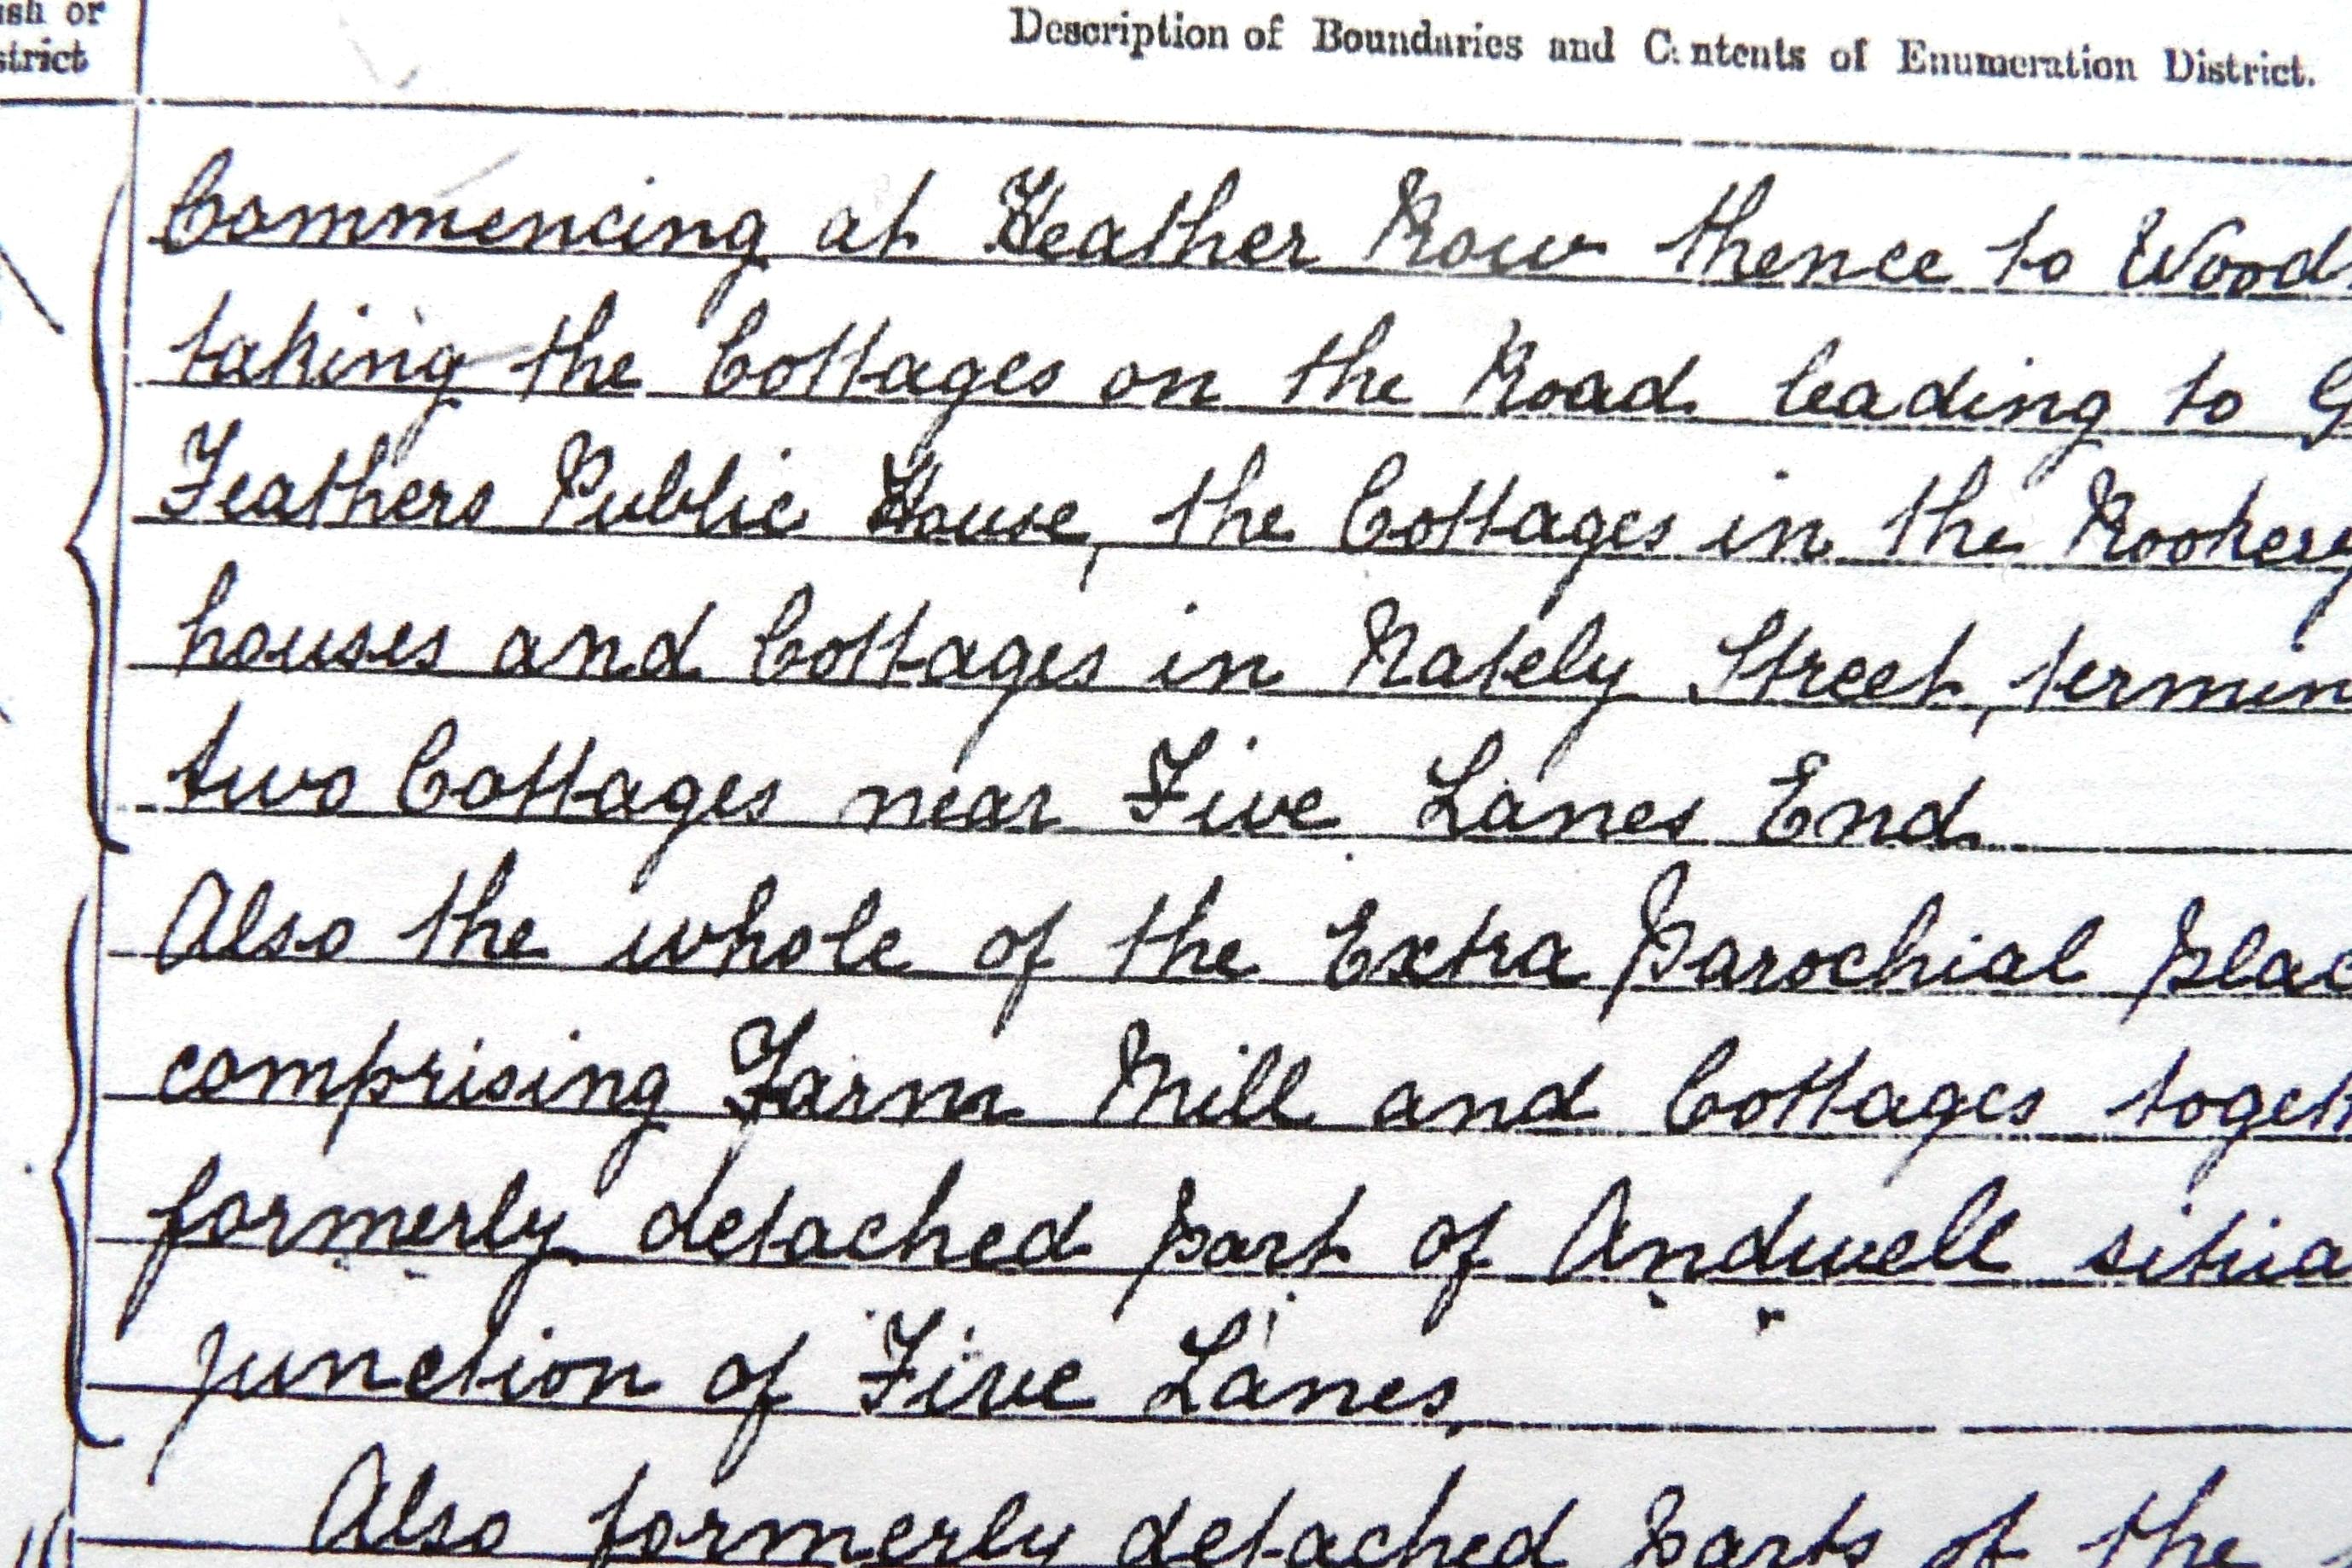 ish or
strict
Description of Boundaries and Contents of Enumeration District.
Commencing at Heather Row thence to Wood
taking the Cottages on the Road leading to G
Feathers Public House, the Cottages in the Rookery
houses and Cottages in Nately Street, termin
two Cottages near Five Lanes End
Also the whole of the Extra Parochial Plac
comprising Farm Mill and Cottages togeth
formerly detached part of Andwell situa
junction of Five Lanes,
Also formerly detached parts of the